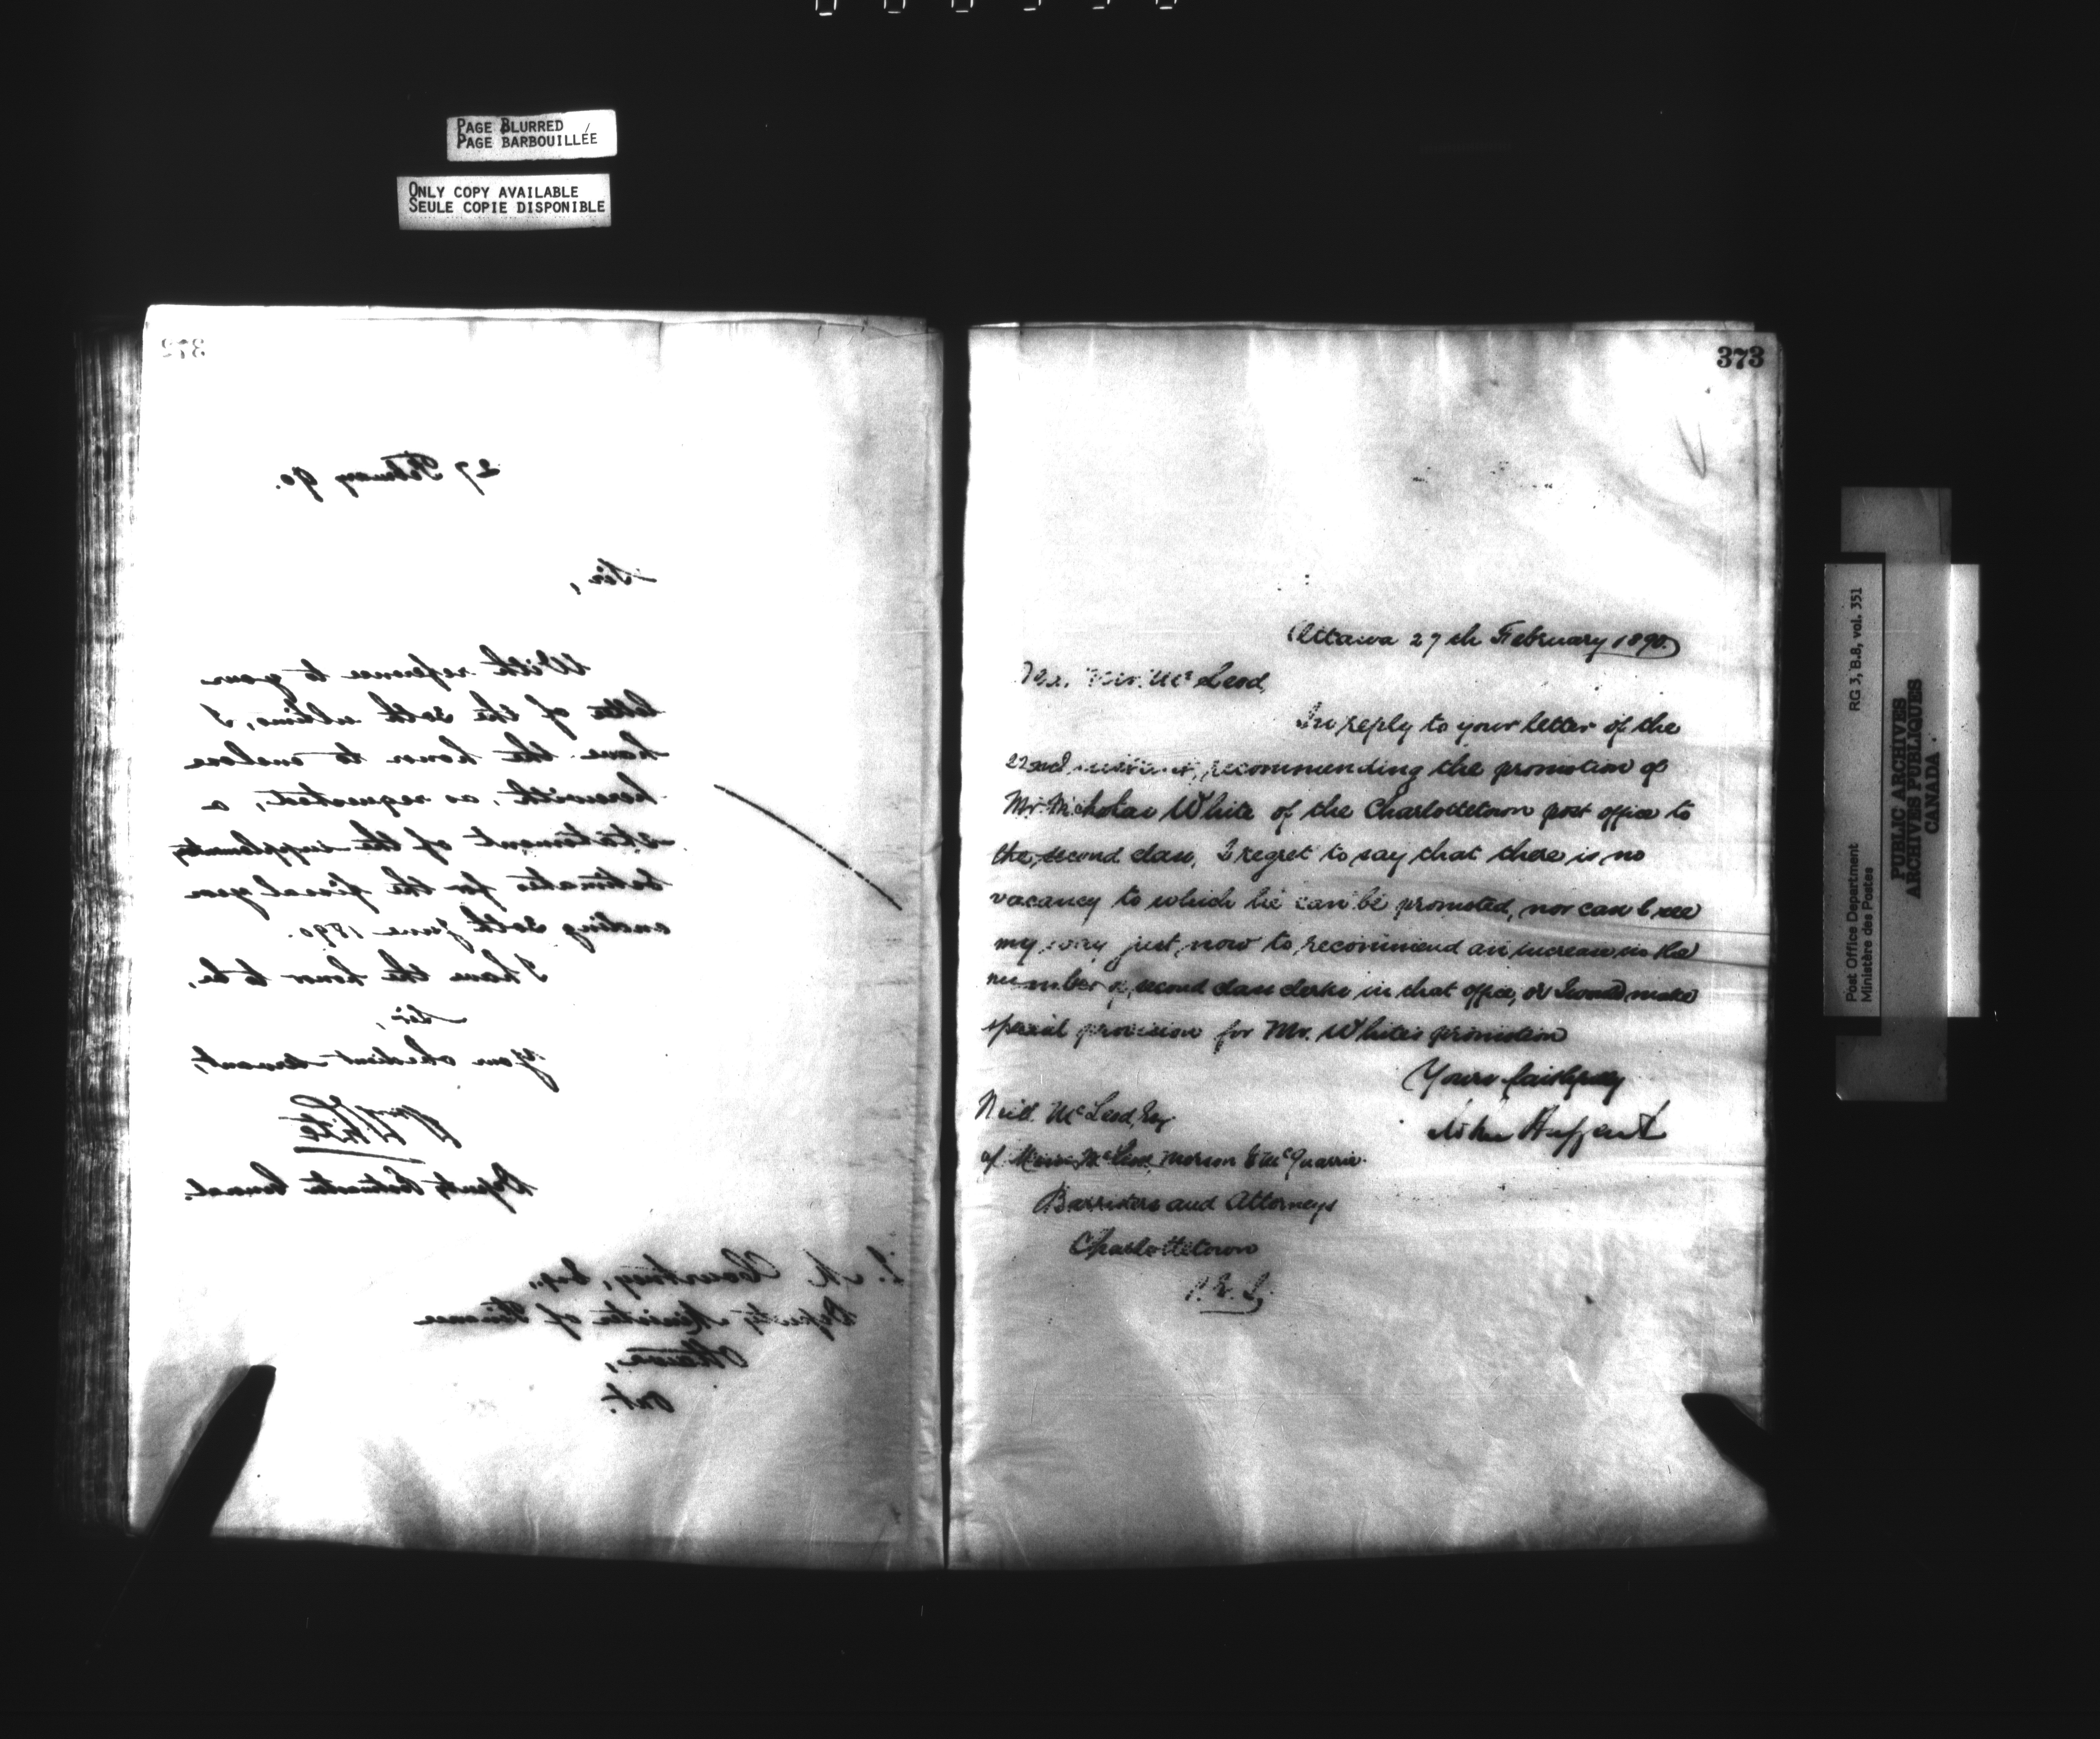 PAGE BLURRED
PAGE BARBOUILLÉE
ONLY COPY AVAILABLE
SEULE COPIE DISPONIBLE
372
27 February 90.
Sir,
With reference to your
letter of the 30th ultimo, I
have the honor to enclose
herewith, as requested, a
statement of the supplementary
Estimates for the fiscal year
ending 30th June 1890.
I have the honor to be,
Sir,
Your obedient servant,
White
Deputy Postmaster General.
J. M. Courtney, Esq.,
Deputy Minister of Finance
Ottawa,
Ont.
373
Ottawa 27th February 1890.
Mr. McLeod,
In reply to your letter of the
22nd instant, recommending the promotion of
Mr. Nicholas White of the Charlottetown post office to
the second class, I regret to say that there is no
vacancy to which he can be promoted, nor can I see
my way just now to recommend an increase in the
number of second class clerks in that office, or I would make
special provision for Mr. White's promotion
Yours faithfully
John Haggart
Neil McLeod, Esq
of Messrs McLeod, Morson & McQuarrie.
Barristers and Attorneys
Charlottetown
P.E.I.
Post Office Department RG 3, B.8, vol. 351
Ministère des Postes
PUBLIC ARCHIVES
ARCHIVES PUBLIQUES
CANADA